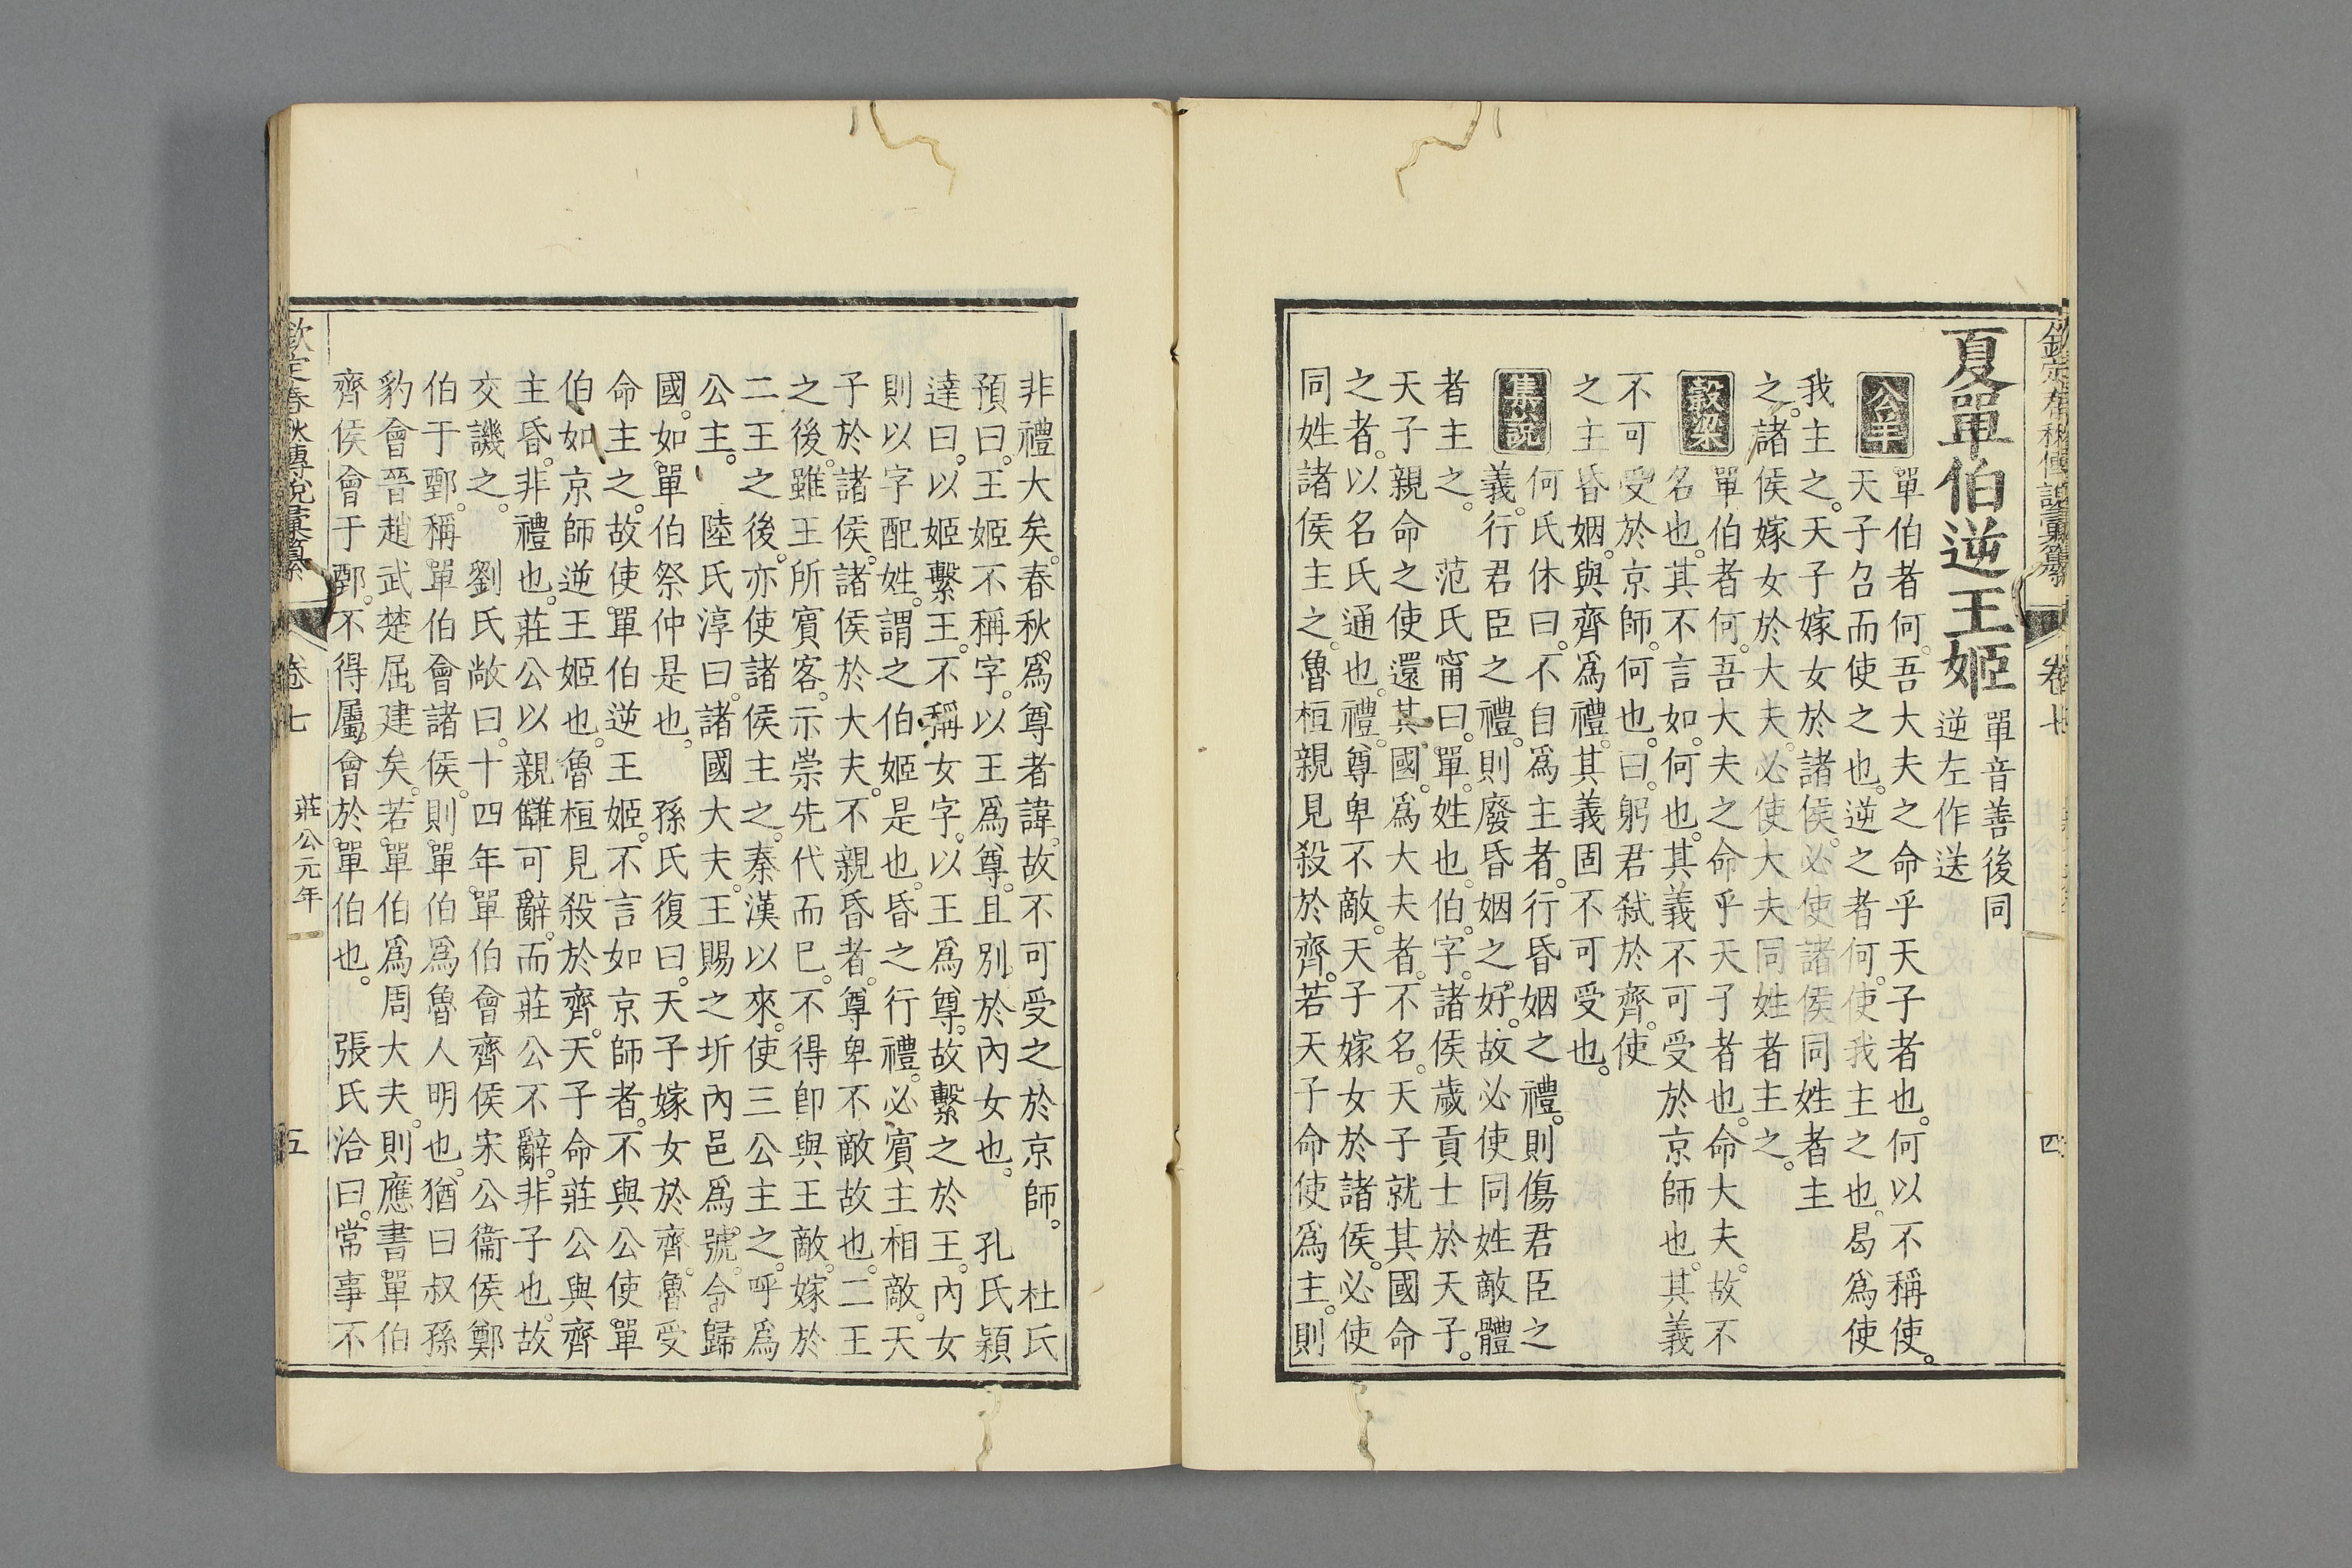 欽定春秋傳說彙纂 卷七 四
夏單伯逆王姬
單音善後同
逆左作送
公羊
單伯者何。吾大夫之命乎天子者也。何以不稱使。
天子召而使之也。逆之者何。使我主之也。曷爲使
我主之。天子嫁女於諸侯。必使諸侯同姓者主
之。諸侯嫁女於大夫。必使大夫同姓者主之。
穀梁
單伯者何。吾大夫之命乎天子者也。命大夫。故不
名也。其不言如。何也。其義不可受於京師也。其義
不可受於京師。何也。曰。躬君弒於齊。使
之主昏姻。與齊爲禮。其義固不可受也。
集說
何氏休曰。不自爲主者。行昏姻之禮。則傷君臣之
義。行君臣之禮。則廢昏姻之好。故必使同姓敵體
者主之。 范氏甯曰。單。姓也。伯。字。諸侯歲貢士於天子。
天子親命之使還其國。爲大夫者。不名。天子就其國命
之者。以名氏通也。禮。尊卑不敵。天子嫁女於諸侯。必使
同姓諸侯主之。魯桓親見殺於齊。若天子命使爲主。則
非禮大矣。春秋爲尊者諱。故不可受之於京師。 杜氏
預曰。王姬不稱字。以王爲尊。且別於內女也。 孔氏穎
達曰。以姬繫王。不稱女字。以王爲尊。故繫之於王。內女
則以字配姓。謂之伯姬是也。昏之行禮。必賓主相敵。天
子於諸侯。諸侯於大夫。不親昏者。尊卑不敵故也。二王
之後。雖王所賓客。示崇先代而已。不得卽與王敵。嫁於
二王之後。亦使諸侯主之。秦漢以來。使三公主之。呼爲
公主。 陸氏淳曰。諸國大夫。王賜之圻內邑爲號。令歸
國。如單伯祭仲是也。 孫氏復曰。天子嫁女於齊。魯受
命主之。故使單伯逆王姬。不言如京師者。不與公使單
伯如京師逆王姬也。魯桓見殺於齊。天子命莊公與齊
主昏。非禮也。莊公以親讎可辭。而莊公不辭。非子也。故
交譏之。 劉氏敞曰。十四年。單伯會齊侯宋公衞侯鄭
伯于鄄。稱單伯會諸侯。則單伯爲魯人明也。猶曰叔孫
豹會晉趙武楚屈建矣。若單伯爲周大夫。則應書單伯
齊侯會于鄄。不得屬會於單伯也。 張氏洽曰。常事不
欽定春秋傳說彙纂 卷七 莊公元年 五